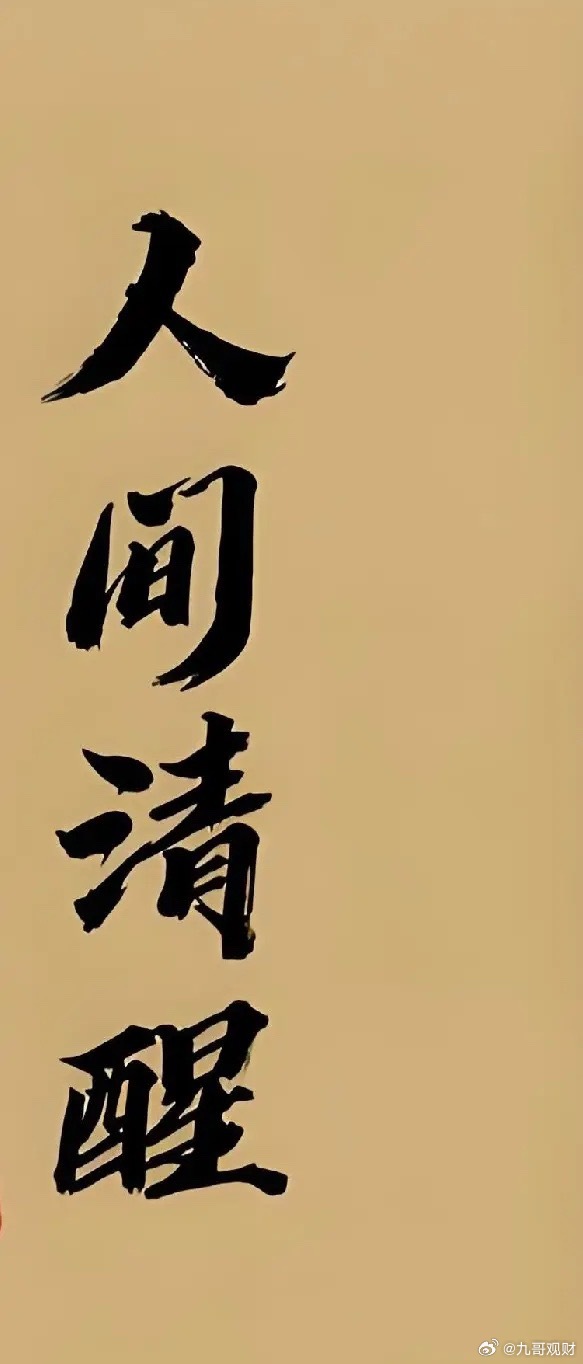 人间清醒
@九哥观财